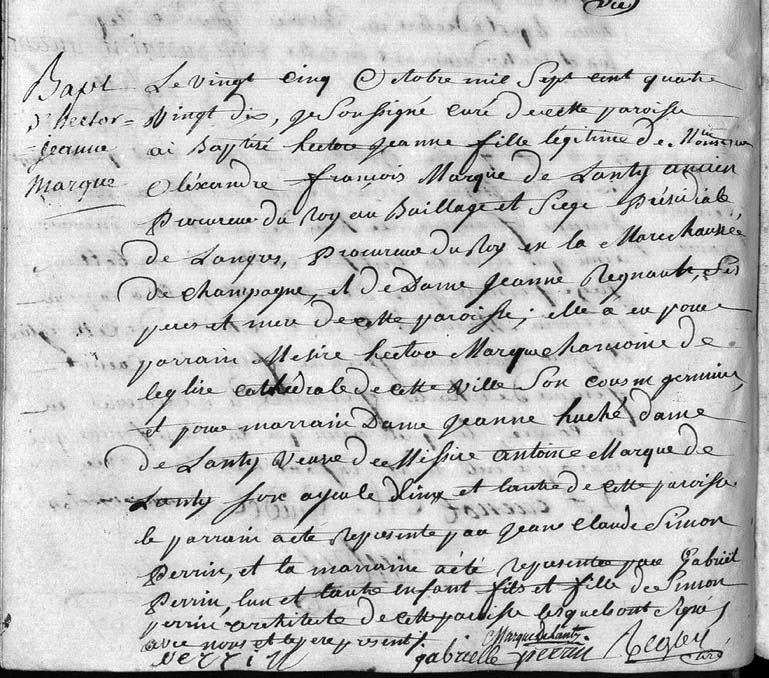 Bapt
d'hector=
jeanne
Marque
Le vingt cinq Octobre mil Sept cent quatre
Vingt dix, je Soussigné curé de cette paroisse
ai Baptisé hector jeanne fille légitime de
Aléxandre françois Marque de Lanty ancien
Procureur du Roy au Baillage et Siege Présidial
de Langres, Procureur du Roy en la Marechaussée
de champagne, et de Dame Jeanne Regnault, Ses
pere et mere de cette paroisse; elle a eu pour
parrain Messire hector Marque chanoine de
leglise cathédrale de cette Ville Son cousin germain,
et pour marraine Dame Jeanne huché dame
de Lanty Veuve de Messire antoine Marque de
Lanty son ayeule et lautre de cette paroisse
le parrain a eté Representé par Jean Claude Simon
Perrin, et la marraine a été representée par Gabriel
Perrin, lun et lautre enfant fils et fille de Simon
perrin architecte de cette paroisse lesquels ont Signés
avec nous et le pere present.
Marque de Lanty
perrin gabrielle perrin
curé